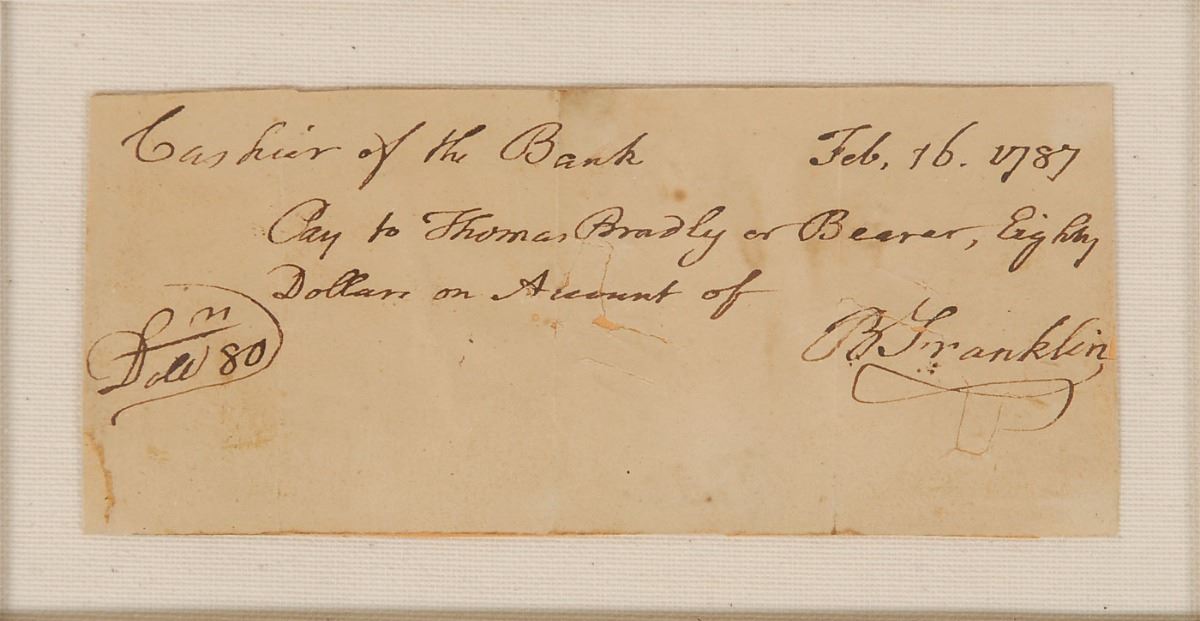 Cashier of the Bank Feb. 16. 1787
Pay to Thomas Bradly or Bearer, Eighty
Dollars on Account of
B. Franklin
Doll 80